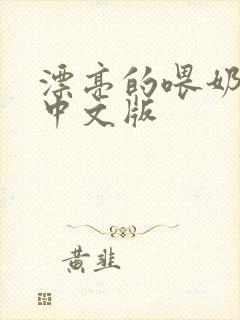 漂亮的喂奶
中文版
黄韭